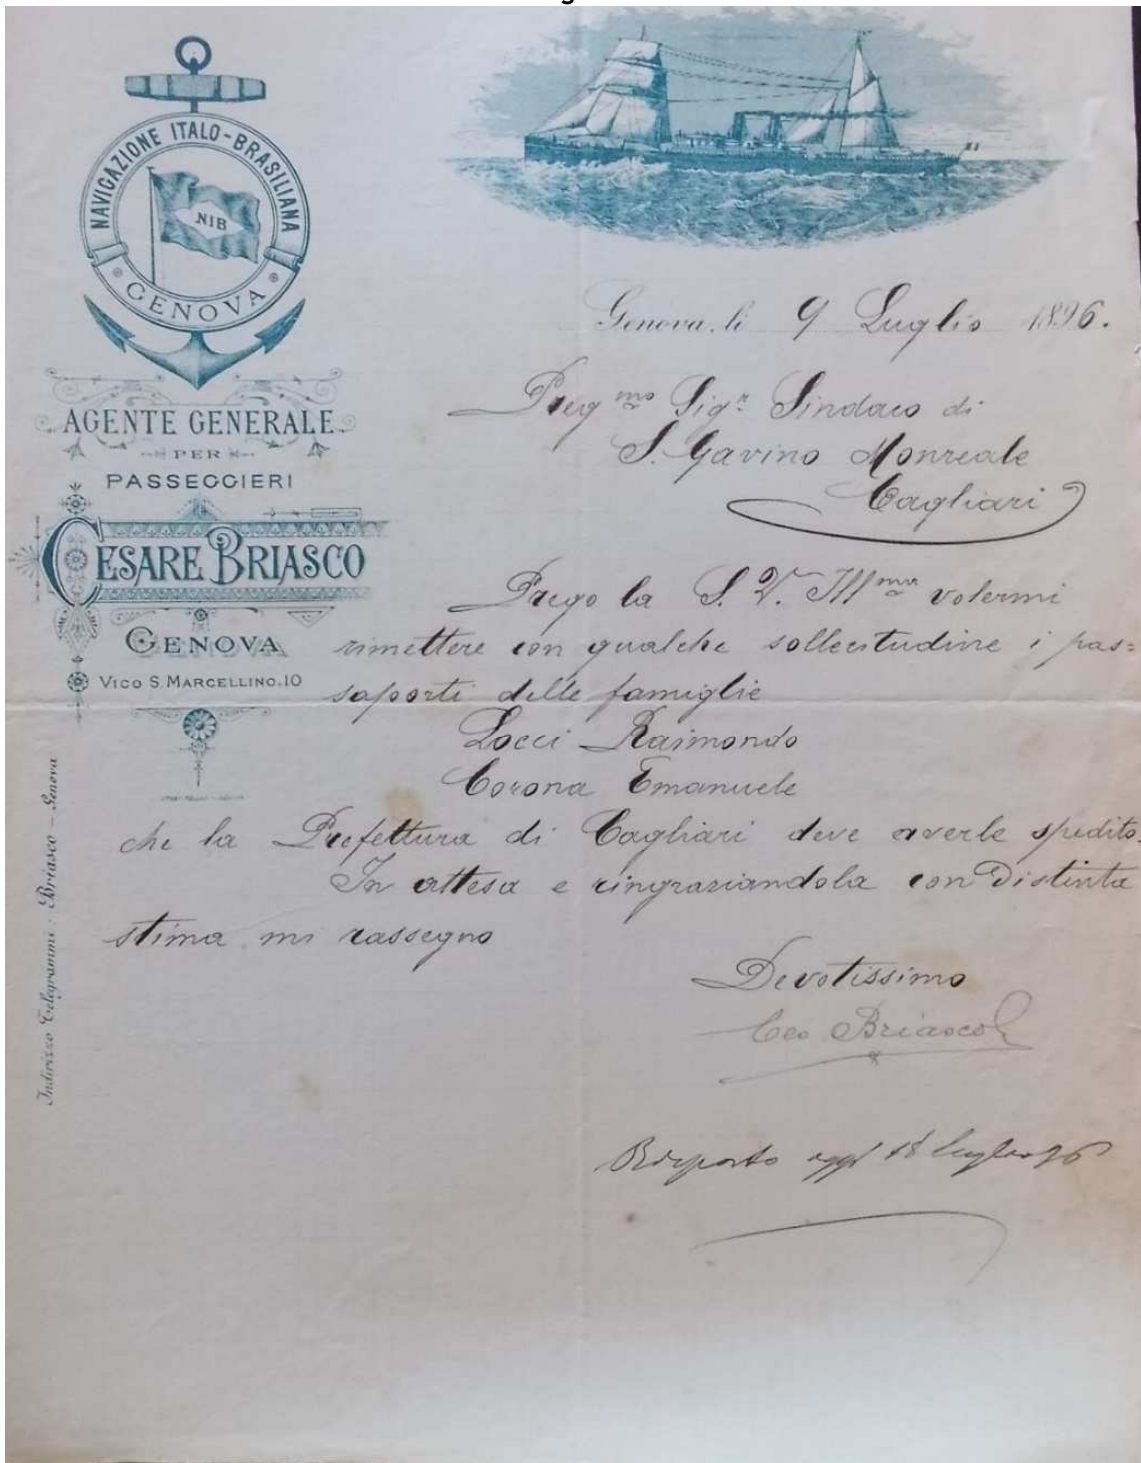 NAVIGAZIONE ITALO-BRASILIANA
NIB
GENOVA
AGENTE GENERALE
PER
PASSEGGIERI
CESARE BRIASCO
GENOVA
VICO S. MARCELLINO. 10
Indirizzo Telegrammi: Briasco - Genova
Genova, li 9 Luglio 1896.
Preg.mo Sig.r Sindaco di
S. Gavino Monreale
Cagliari
Prego la S. V. Ill.ma volermi
rimettere con qualche sollecitudine i pas=
saporti delle famiglie
Locci Raimondo
Corona Emanuele
che la Prefettura di Cagliari deve averle spedito.
In attesa e ringraziandola con Distinta
stima mi rassegno
Devotissimo
Ces Briasco
Risposto oggi 18 luglio 96